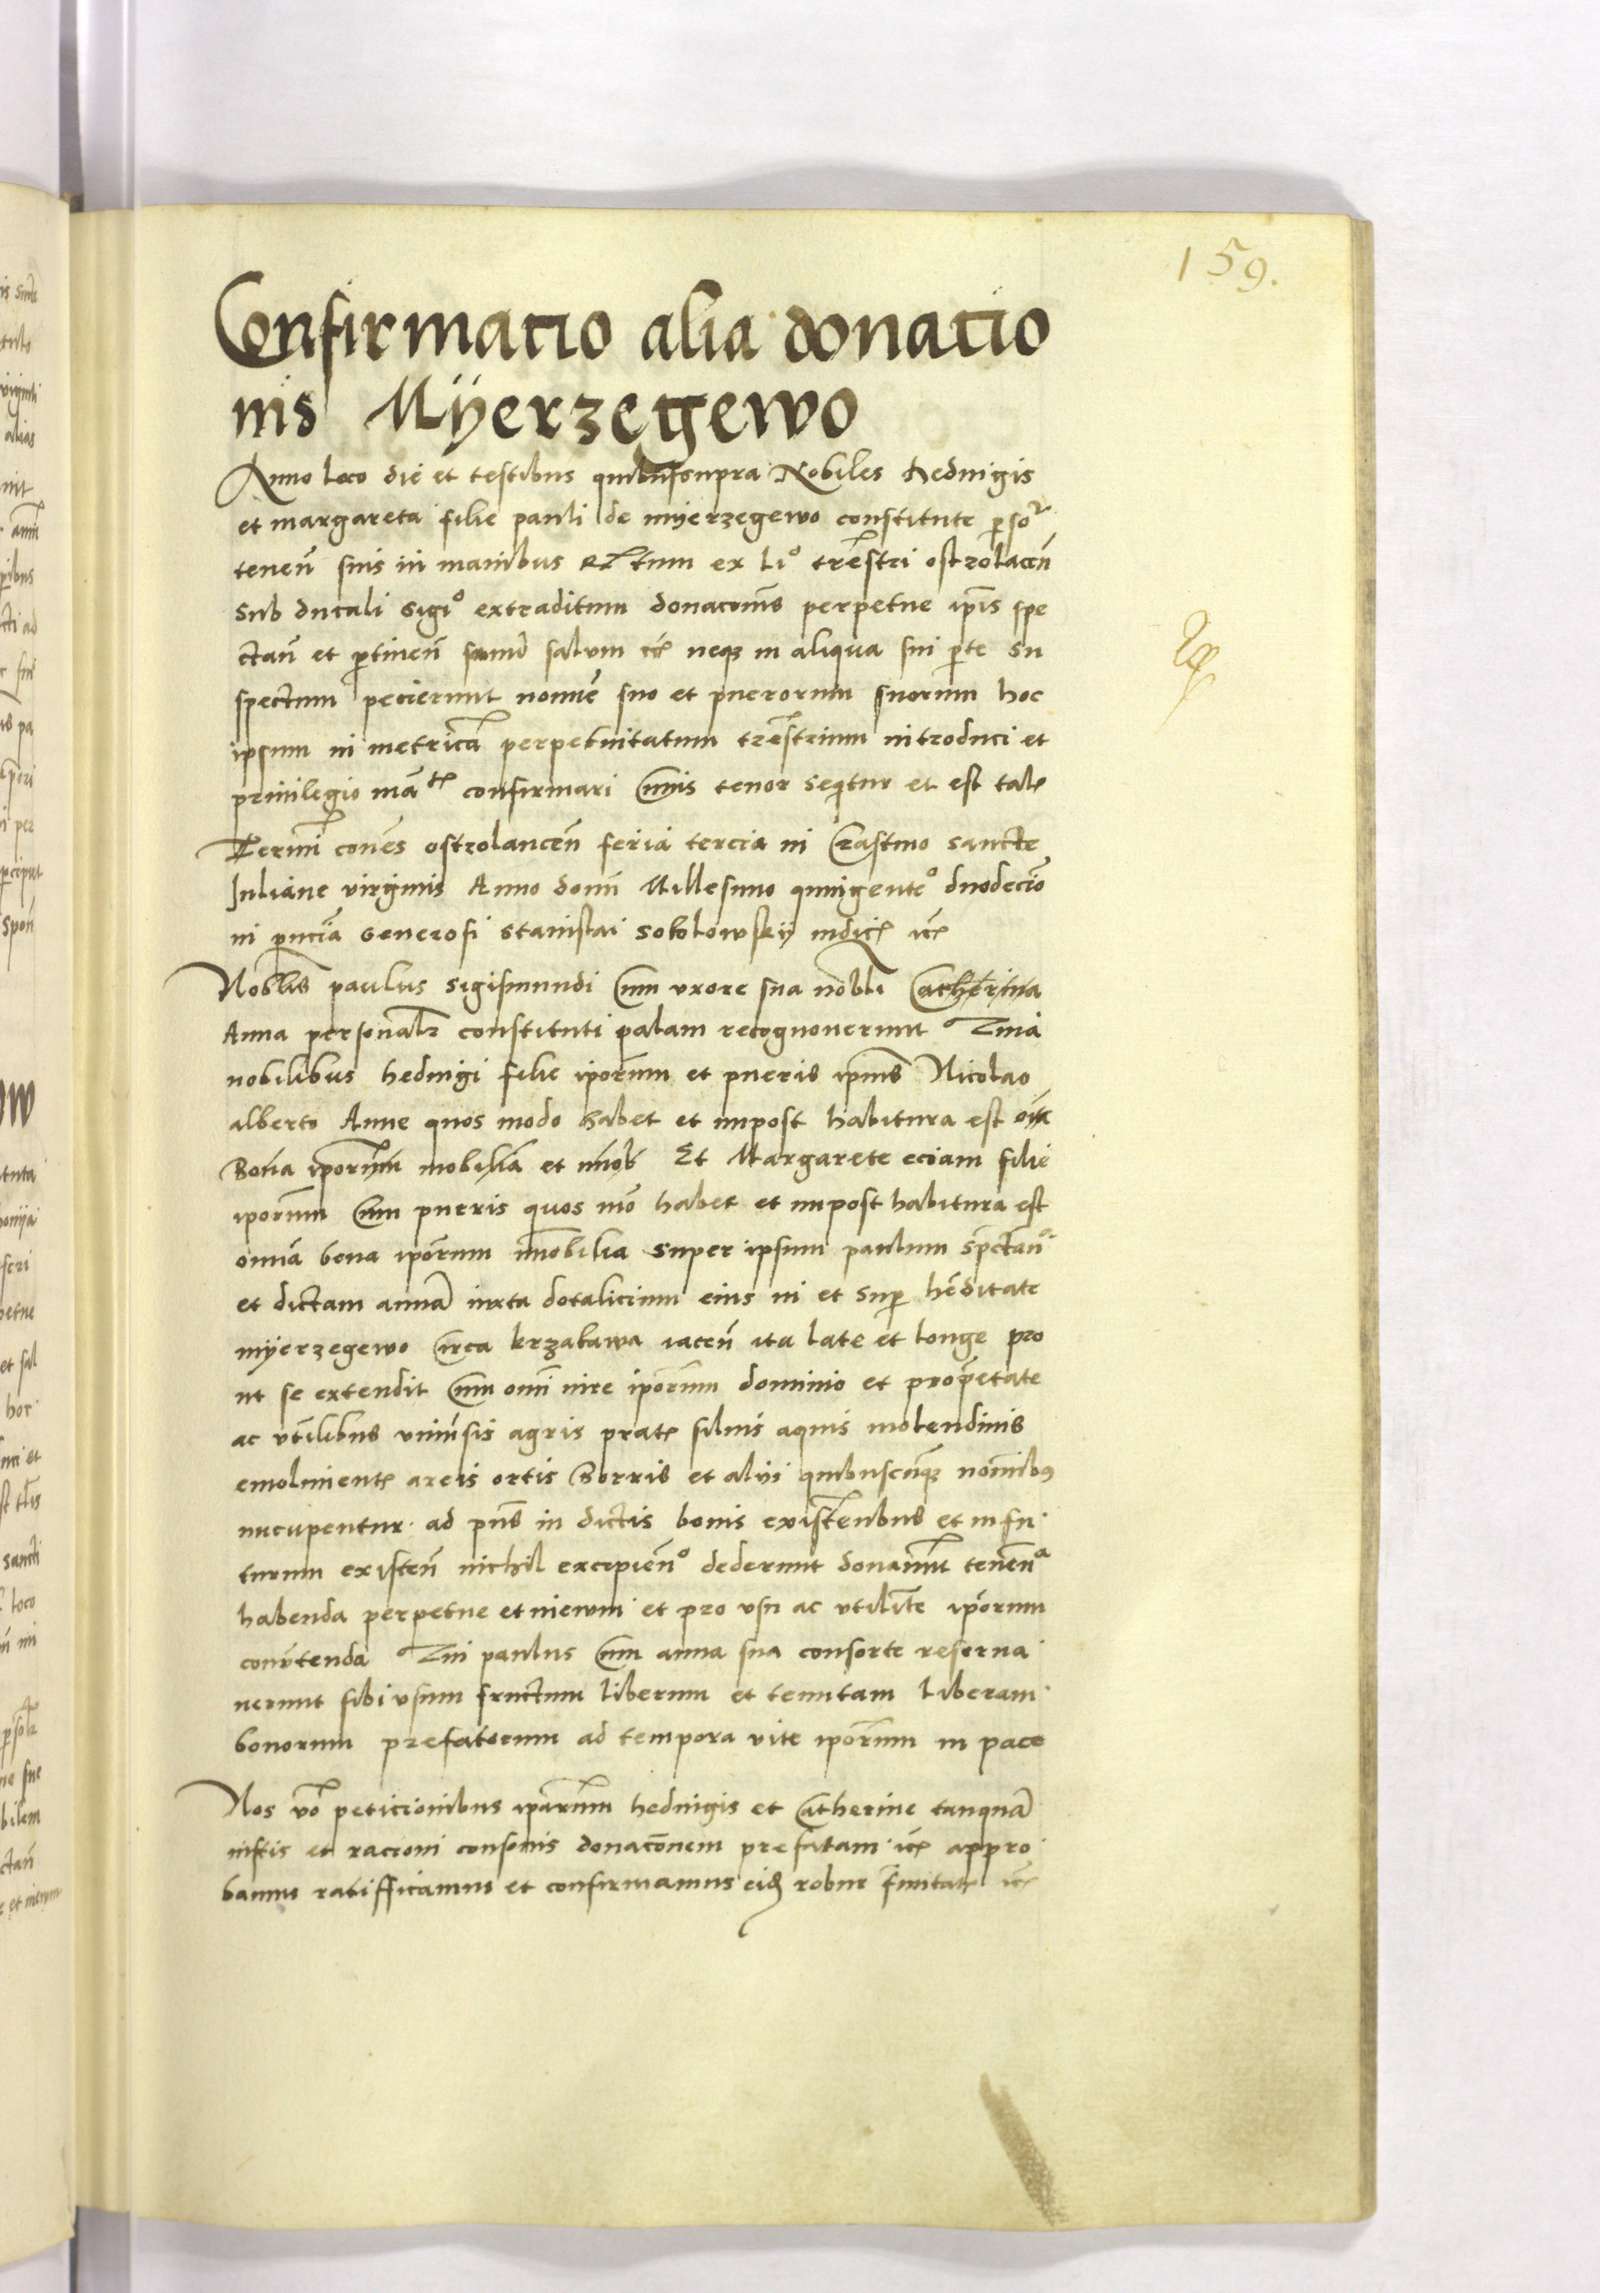 159.
Confirmatio alia donatio
nis Mÿerzegewo
Anno loco die et testibus quibussupra Nobiles Hedvigis
et margareta filie pauli de mÿerzegewo constitute p̱soꝛ
teneñ suis in manibus Rctum ex liº treṡtri ostrolaceñ
Sub ducali sigiº extraditum donacoñis perpetue ip̄is spe
ctañ et ꝑtineñ sanū salvum etc̄ neqꝫ in aliqua sui ꝑte Su
spectum pecierunt nomīe suo et puerorum suorum hoc
ipsum in metricā perpetuitatum treṡtrium introduci et
privilegio mā confirmari Cuius tenor seqͥtur et est tal̄
Termī coñes ostrolanceñ feria tercia in Crastino sancte
Juliane virginis Anno domī Millesimo quingenteº duodecīo
in p̄ncia Generosi Stanislai Sokolowskÿ iudic̄ etc̄
Nob̄lis paulus Sigismundi Cum uxore sua nob̄li Catherina
Anna personalꝛ constituti palam recognoverunt Quia
nobilibus hedvigi filie ip̄orum et pueris ip̄ius Nicolao
alberto Anne quos modo habet et inpost habitura est oīa
Bona ip̄orum mobilia et īmob Et Margarete eciam filie
ip̄orum Cum pueris quos mō habet et inpost habitura est
omīa bona ip̄orum īmobilia super ipsum paulum spectanº
et dictam annā iuxta dotalicium eius in et Suꝑ hēditate
mÿerzegewo Circa krzakawa iaceñ ita late et longe pro
ut se extendit Cum omī iure ip̄orum dominio et prop̄etate
ac utīlibus univ̄sis agris prat̄ silvis aquis molendinis
emolument̄ areis ortis Borris et alÿs quibuscūqꝫ nomībꝰ
nūcupentur ad pn̄s in dictis bonis existeñbus et in fu
turum existeñ nichil excipienº dederunt donarunt teneñª
habenda perpetue et in evum et pro usu ac utiliṫe ip̄orum
conv̄tenda Qui paulus Cum anna sua consorte reserva
verunt sibi usum fructum liberum et tenutam liberam
bonorum prefatorum ad tempora vite ip̄orum in pace
Nos v̄o peticionibus ip̄arum hedvigis et Catherine tanquā
iustis et racioni consonis donacōnem prefatam etc̄ appro
bamus ratifficamus et confirmamus eiꝫ robur f̄mitat̄ etc̄